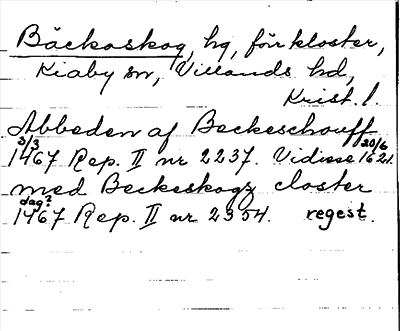 Bäckaskog, hg, förr kloster,
Kiaby sn, Villands hd,
Krist. l.
Abbeden af Beckeschouff
3/3 1467 Rep. II nr 2237. Vidisse 20/6 1621.
med Beckeskogz closter
dag? 1467 Rep. II nr 2354. regest.